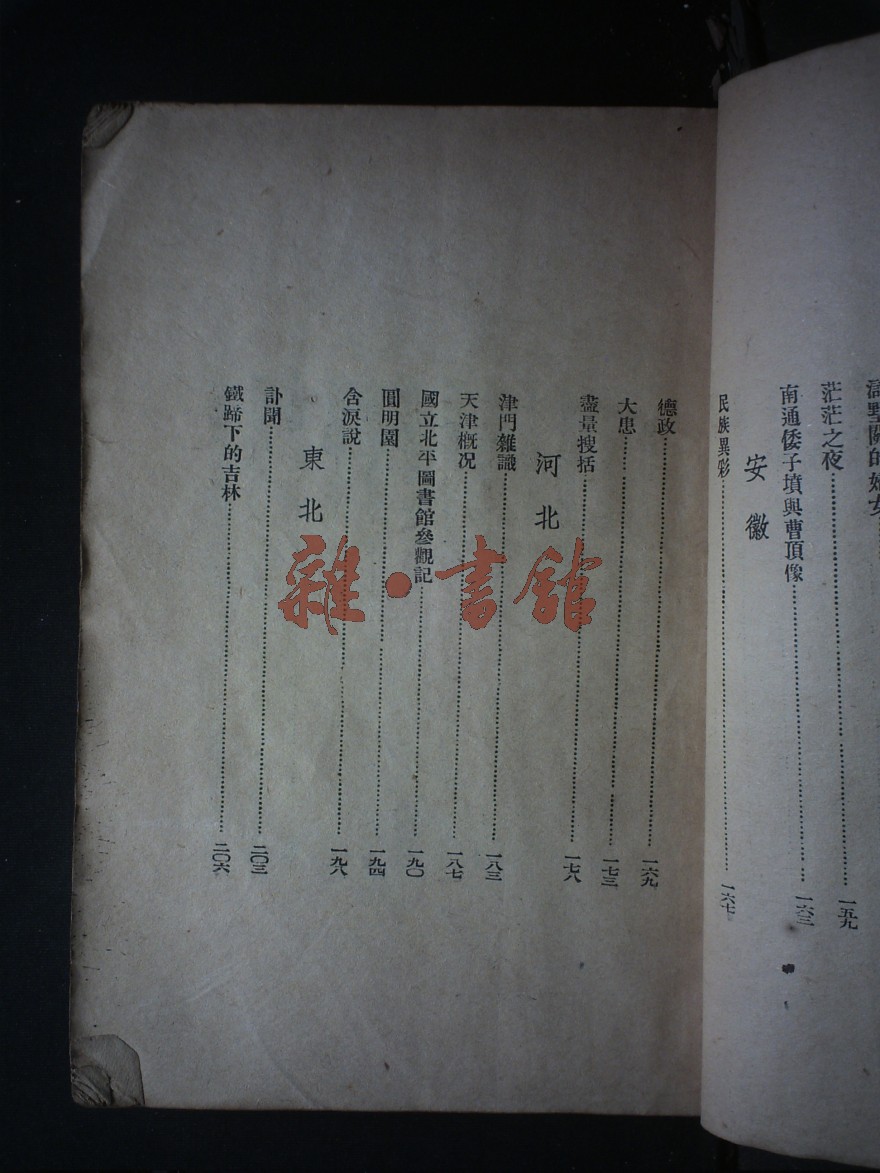 滸墅關的婦女
茫茫之夜 一五九
南通倭子墳與曹頂像 一六三
安徽
民族異彩 一六七
德政 一六九
大患 一七三
盡量搜括 一七八
河北
津門雜識 一八三
天津概況 一八七
國立北平圖書館參觀記 一九〇
圓明園 一九四
含淚說 一九八
東北
訃聞 二〇三
鐵蹄下的吉林 二〇六
雜·書館